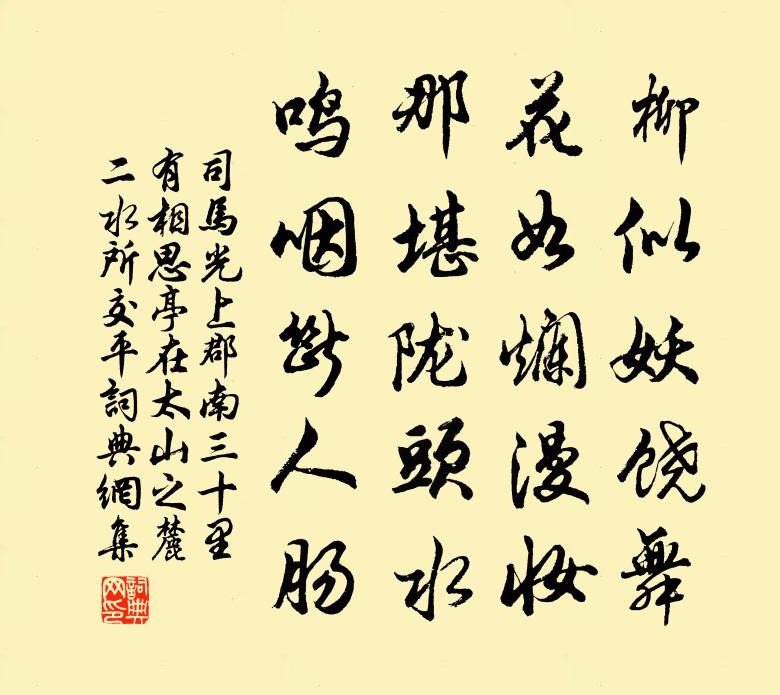 柳似妖饶舞
花如爛漫妆
那堪陇頭水
鸣咽断人肠
司馬光上郡南三十里
有相思亭在太山之麓
二水所交平詞典網集
詞典网印